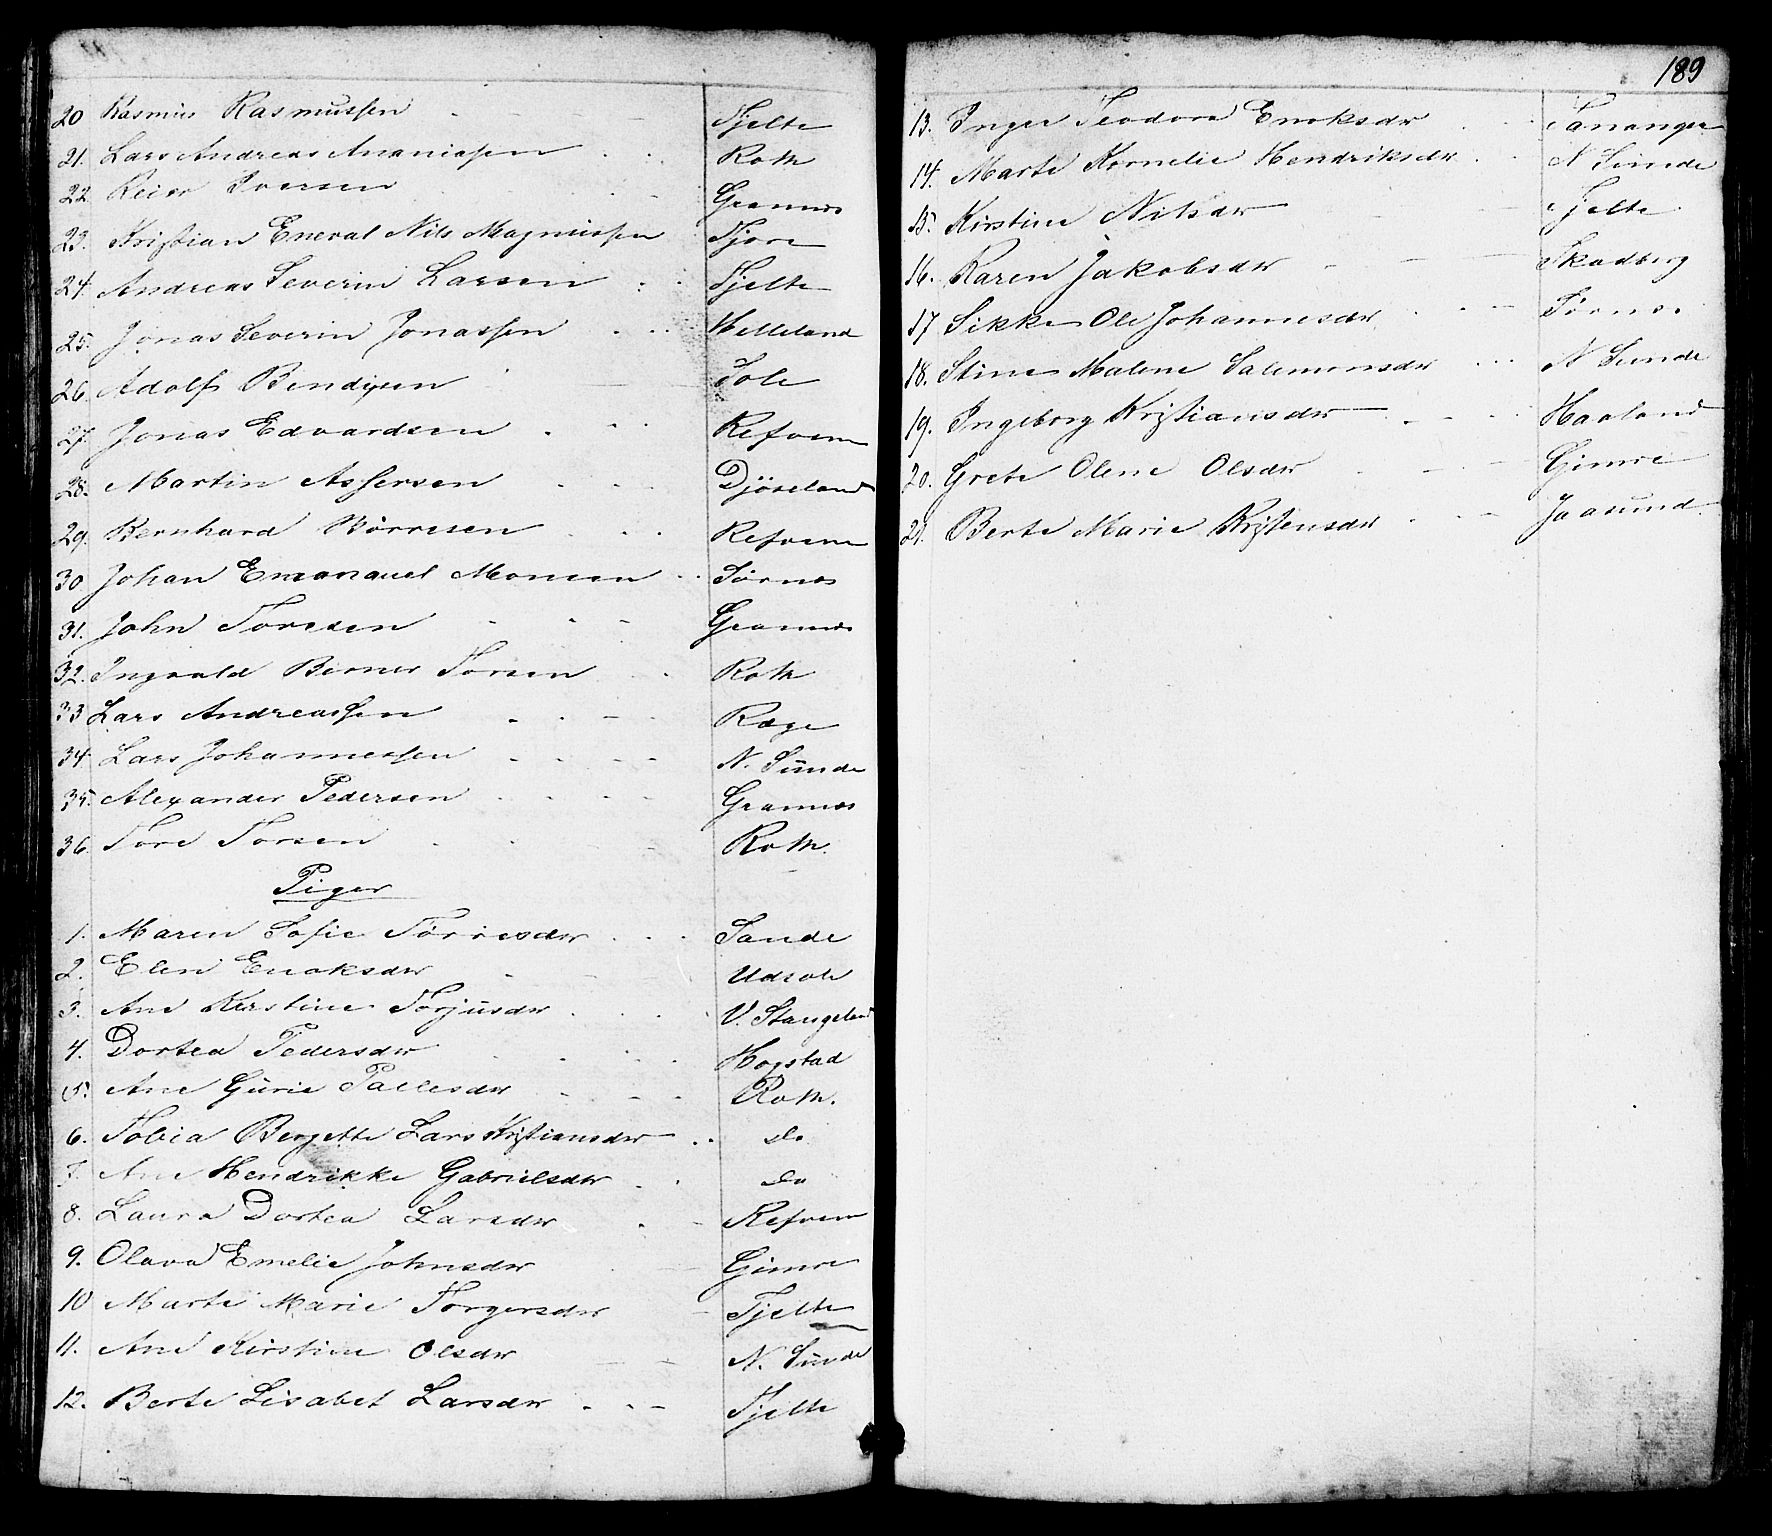 20 Rasmus Rasmussen Tjelte
21. Lars Andreas Ananiasen Roth
22. Reier Iversen Grannes
23. Kristian Eneval Nils Magnussen Tjora
24. Andreas Severin Larsen Tjelte
25. Jonas Severin Jonassen Helleland
26. Adolf Bendixen Sole
27. Jonas Edvardsen Refsem
28. Martin Assersen Djöseland
29. Bernhard Börresen Refsem
30 Johan Emanauel Monsen Sörnes
31. John Toresen Grannes
32. Ingvald Berner Torsen Roth
33 Lars Andreassen Ræge
34. Lars Johannessen N. Sunde
35. Alexander Pedersen Grannes
36. Tore Torsen Roth.
Piger
1. Maren Sofie Törresdtr Sande
2. Elen Enoksdtr Udsole
3. Ane Kirstine Torjusdtr V. Stangeland
4. Dortea Pedersdtr Hogstad
5. Ane Gurie Pallesdtr Roth.
6. Tobia Bergette Lars Kristiansdtr do
7. Ane Hendrikke Gabrielsdtr do
8. Laura Dortea Larsdtr Refsem
9. Olava Emelie Johnsdtr Gimre
10 Marte Marie Torgersdtr Tjelte
11. Ane Kirstine Olsdtr N. Sunde
12. Berte Lisabet Larsdtr Tjelte
189
13. Inger Teodora Enoksdtr Tananger
14. Marte Kornelie Hendriksdtr N Sunde
15. Kirstine Nilsdtr Tjelte
16. Karen Jakobsdtr Skadberg
17 Sikke Ole Johannesdtr Sörnes.
18. Stine Malene Salemonsdtr N Sunde
19. Ingeborg Kristiansdtr Haaland
20. Grete Olene Olsdtr Gimre
21. Berte Marie Kristensdtr Jaasund